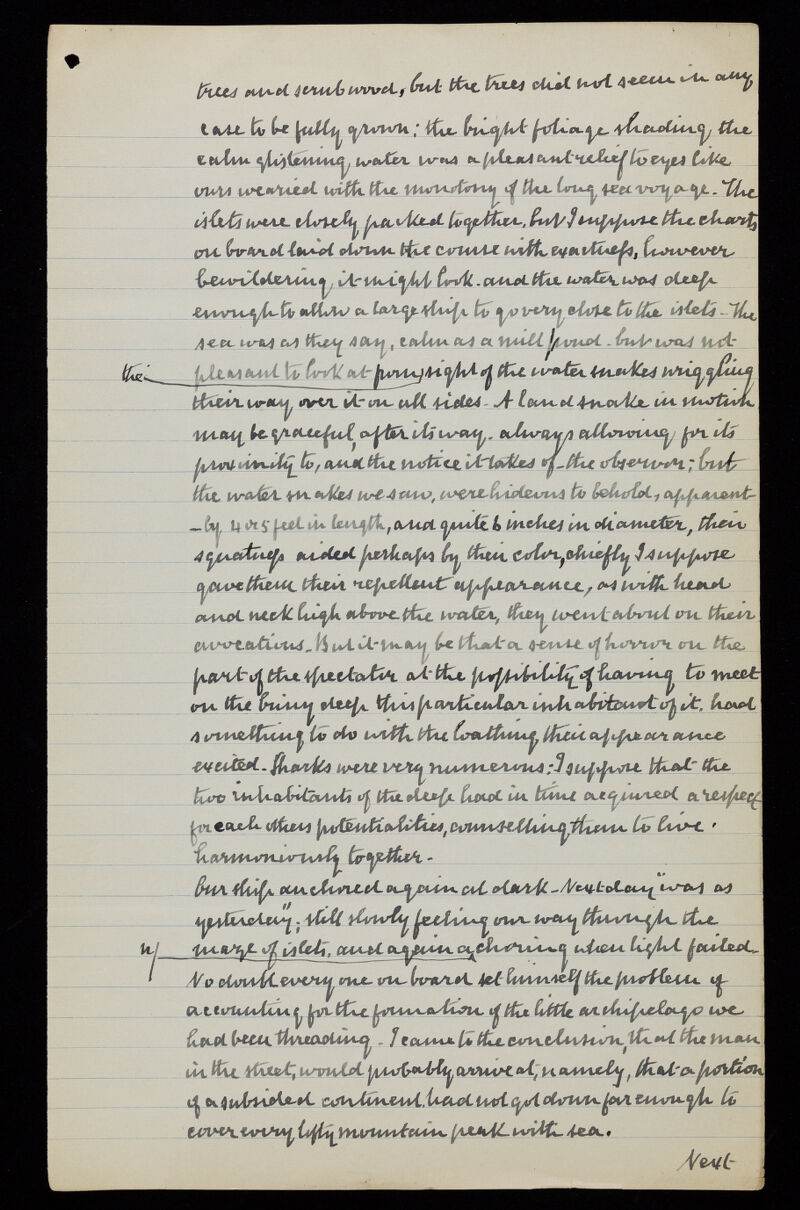 trees and scrubwood, but the trees did not seem in any
case to be fully grown; the bright foliage shading, the
calm glistening, water was a pleasant relief to eyes like
ours wearied with the monotony of the long sea voyage. The
islets were closely packed together, but I suppose the charts
on board laid down the course with exactness, however
bewildering, it might look. and the water was deep
enough to allow a large ship to go very close to the islets. The
sea was as they say, calm as a mill pond. but was not
their pleasant to look at from sight of the water snakes wriggling
their way over it on all sides. A land snake in motion
may be graceful, after its way. always allowing for its
proximity to, and the notice it takes of the observer; but
the water snakes we saw, were hideous to behold, apparent
-ly 4 or 5 feet in length, and quite 6 inches in diameter, their
squatness aided perhaps by their color, chiefly I suppose
gave them their repellent appearance, as with head
and neck high above the water, they went about on their
avocations. But it may be that a sense of horror on the
part of the spectator at the possibility of having to meet
on the briny deep this particular inhabitant of it. had
something to do with the loathing their appearance
excited. Sharks were very numerous: I suppose that the
two inhabitants of the deep had in time acquired a respect
for each others potentialities, counselling them to live.
harmoniously together.
Our ship anchored again at dark. Next day "was as
yesterday"; still slowly feeling our way through the
n/ maze of islets, and again achoring when light failed.
No doubt every one on board set himself the problem of
accounting for the formation of the little archipelago we
had been threading. I came to the conclusion, that the man
in the street, would probably arrive at, namely, that a portion
of a subsided continent. had not got down far enough to
cover every lofty mountain peak with sea.
Next